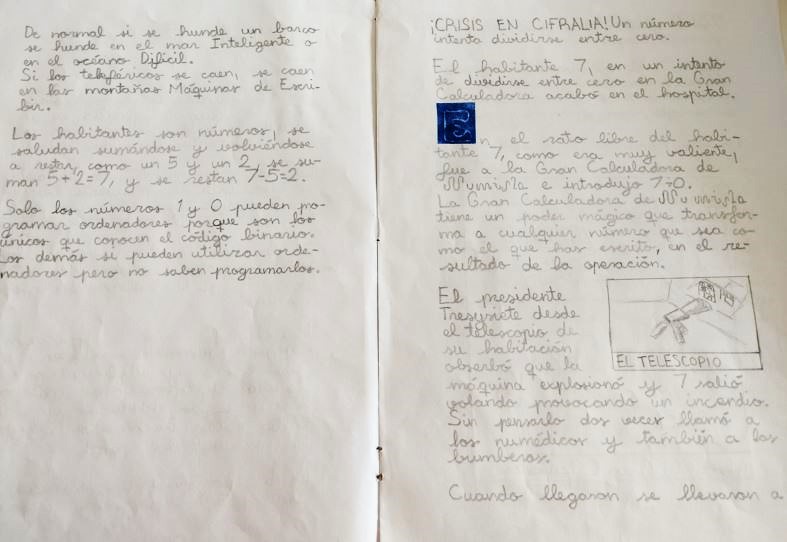 De normal si se hunde un barco
se hunde en el mar Inteligente o
en el océano Difícil.
Si los teleféricos se caen, se caen
en las montañas Máquinas de Escri-
bir.
Los habitantes son números, se
saludan sumándose y volviéndose
a restar, como un 5 y un 2, se su-
man 5+2=7, y se restan 7-5=2.
Solo los números 1 y 0 pueden pro-
gramar ordenadores porque son los
únicos que conocen el código binario.
Los demás si pueden utilizar orde-
nadores pero no saben programarlos.
¡CRISIS EN CIFRALIA! Un número
intenta dividirse entre cero.
El habitante 7, en un intento
de dividirse entre cero en la Gran
Calculadora acabó en el hospital.
En el rato libre del habi-
tante 7, como era muy valiente,
fue a la Gran Calculadora de
e introdujo 7÷0.
La Gran Calculadora de
tiene un poder mágico que transfor-
ma a cualquier número que sea co-
mo él que has escrito, en el re-
sultado de la operación.
El presidente
Tresysiete desde
el telescopio de
su habitación
obserbó que la
máquina explosionó y 7 salió
volando provocando un incendio.
Sin pensarlo dos veces llamó a
los numédicos y también a los
bumberos.
EL TELESCOPIO
Cuando llegaron se llevaron a